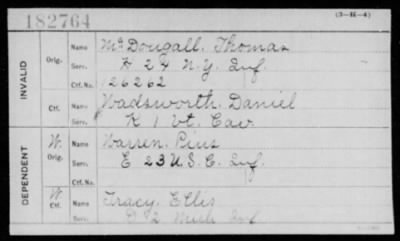 182764
(3-H-4)
INVALID
Orig.
Name McDougall, Thomas
Serv. K 24 N.Y. Inf.
Ctf. No. 126262
Ctf.
Name Wadsworth, Daniel
Serv. K 1 Vt. Cav
DEPENDENT
W. Orig.
Name Warren, Pius
Serv. E 23 U.S.C. Inf.
Ctf. No.
W. Ctf.
Name Tracy, Ellis
Serv. 2 Mich Inf